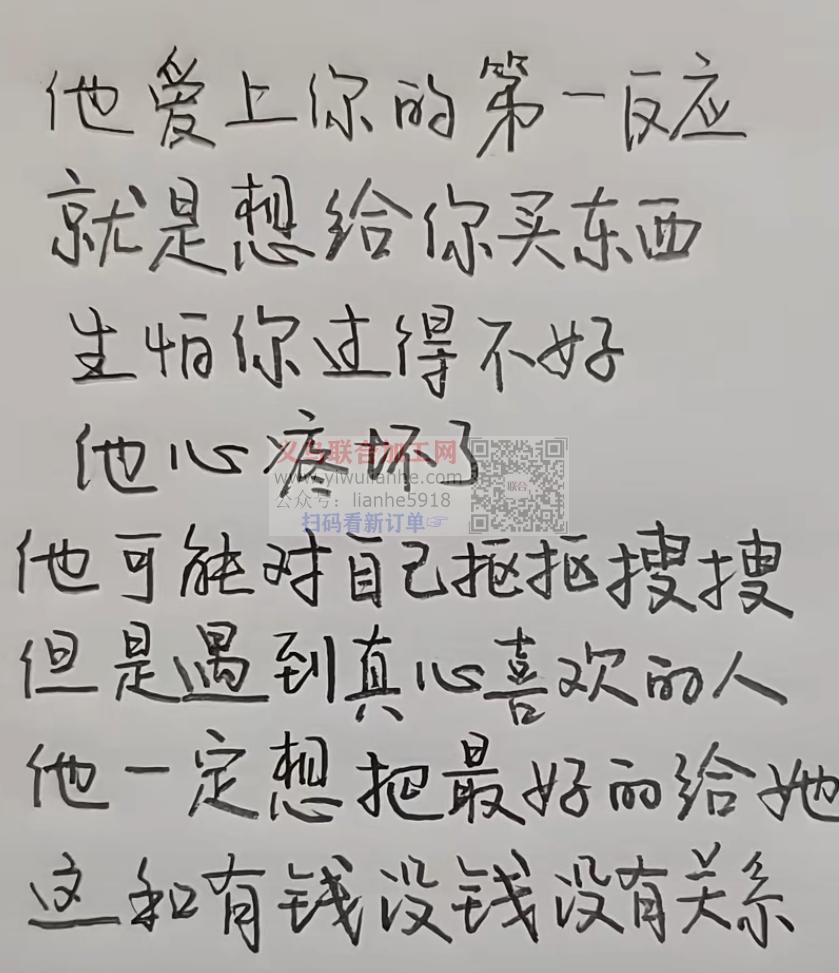 他爱上你的第一反应
就是想给你买东西
生怕你过得不好
他心疼坏了
义乌联合加工网
www.yiwulianhe.com
公众号：lianhe5918
扫码看新订单☞
联合
他可能对自己抠抠搜搜
但是遇到真心喜欢的人
他一定想把最好的给她
这和有钱没钱没有关系